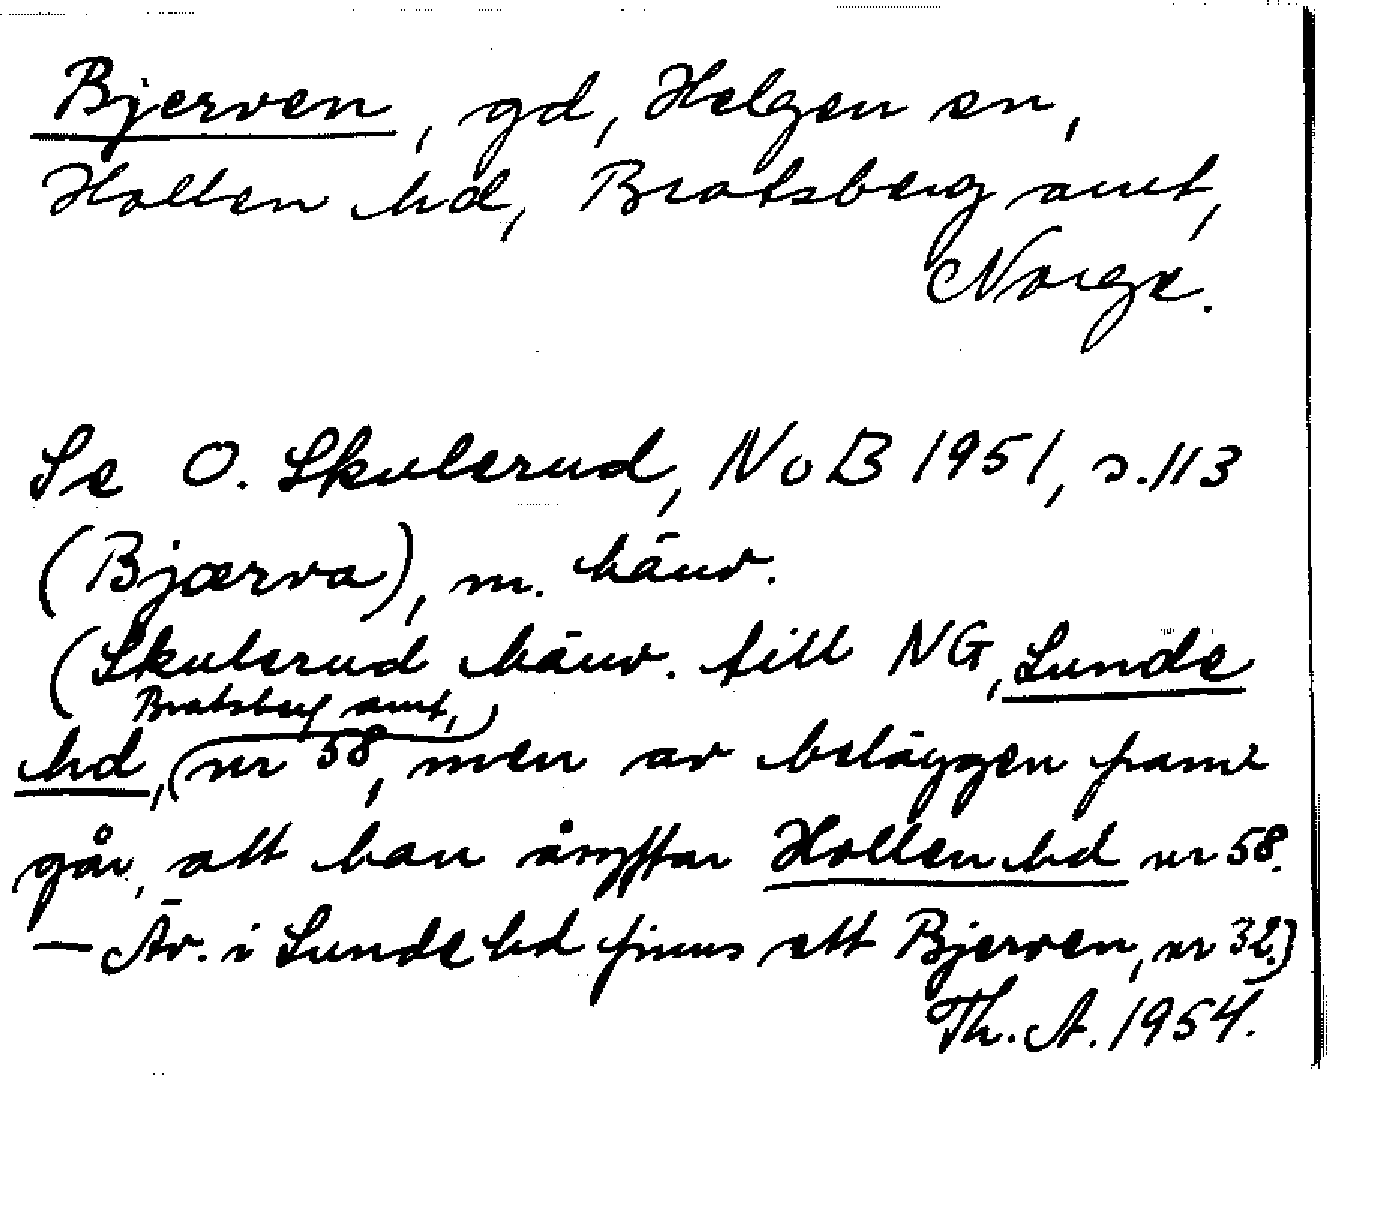 Bjerven, gd, Helgen sn,
Hollen hd, Bratsberg amt,
Norge.
Se O. Skulerud, NoB 1951, s. 113
(Bjærva), m. hänv.
(Skulerud hänv. till NG, Lunde
Bratsberg amt,
hd, (nr 58, men av beläggen fram-
går, att han åsyftar Hollen hd nr 58.
— Äv. i Lunde hd finns ett Bjerven, nr 32.)
Th. A. 1954.